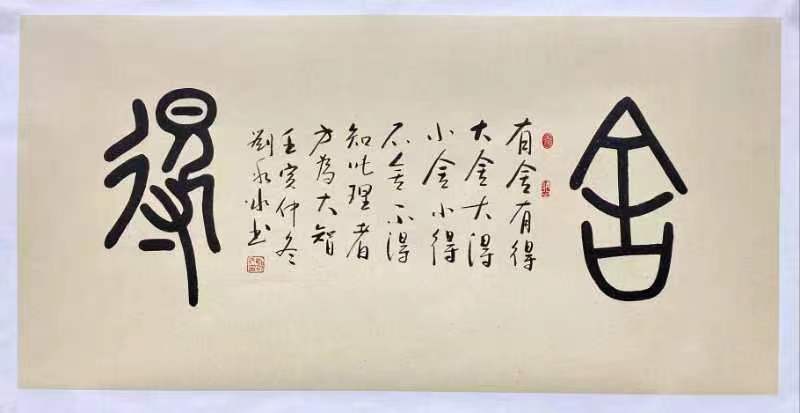 舍
有舍有得
大舍大得
小舍小得
不舍不得
知此理者
方为大智
壬寅仲冬
刘永冰书
得